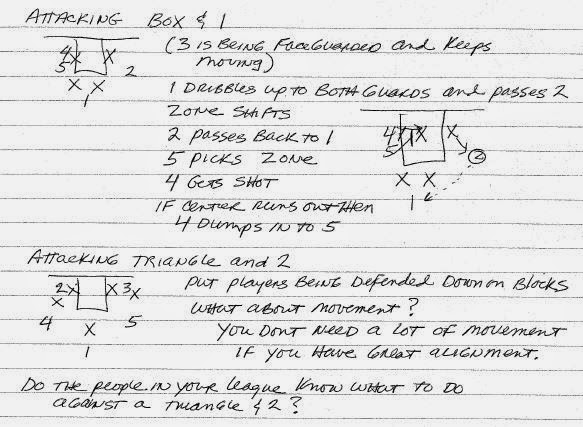 Attacking Box & 1
(3 is Being Faceguarded and Keeps
moving)
4 X X
5 2
X X
1
1 Dribbles up to Both Guards and passes 2
Zone Shifts
2 passes Back to 1
5 picks Zone
4 Gets Shot
If center runs out then
4 Dumps in to 5
4 X X
5 2
X X
1
Attacking Triangle and 2
Put players Being Defended Down on Blocks
What about movement?
You Dont need a lot of movement
if you Have Great alignment.
2X X3X
X
4 X 5
1
Do the people in your league know what to do
against a triangle & 2?